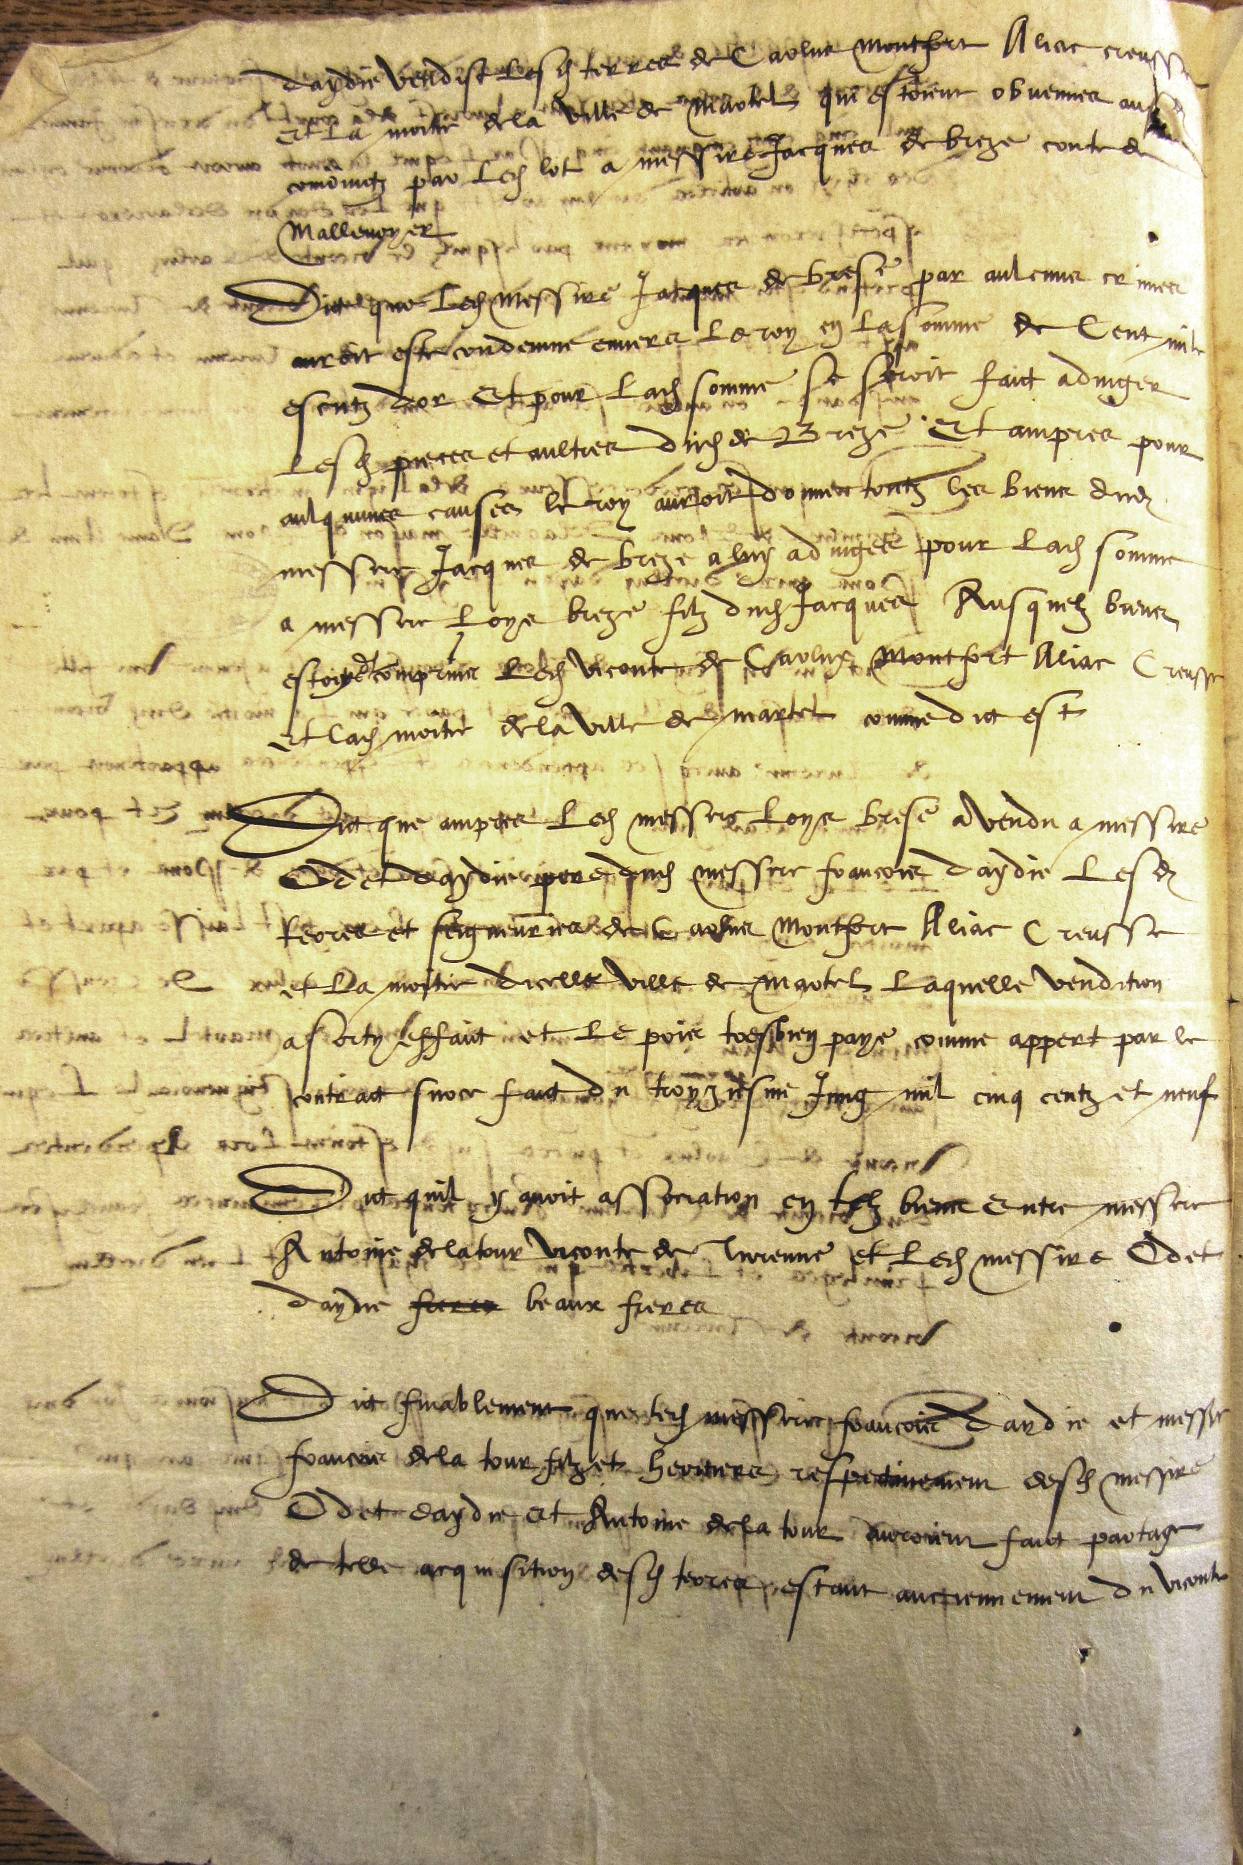 daydie vendist lesd terres de Carlux Montfort Aliac creusse
et la moitie de la ville de martel qui estoient obvenues ausd
conioinctz par led lot a messire Jacques de breze conte de
Mallevoyer
Dict que led messire Jacques de brese par aulcuns crimes
auroit este condemne envers le roy en la somme de Cent mile
escutz dor Et pour lad somme se seroit faict adiuger
lesd pieces et aultres dud de Breze Et ampres pour
aulqunes causes le roy auroit donnes toutz les biens dud
messire Jacques de breze a luy adiuges pour lad somme
a messire Loys breze filz dud Jacques Ausquelz biens
estoyent comprins led viconte de Carlux Montfort Aliac Creusse
et lad moitie de la ville de martel comme dict est
Dict que ampres led messire Loys brese a vendu a messire
Odet daydie pere dud messire francois daydie lesd
terres et seigneuries de Carlux Montfort Aliac Creusse
et la moitie dicelle ville de martel laquelle vendition
a sorty effaict et le pris tresbien paye comme appert par le
contract sur ce faict du troyziesme Jung mil cinq centz et neuf
Dict quil y avoit association en telz biens entre messire
Antoine de la tour viconte de turenne et led messire Odet
daydie freres beaux freres
Dict finablement que led messire francois daydie et messire
francois de la tour filz et heritiers respectivement desd messire
Odet daydie et Antoine de la tour auroient faict partage
de telle acquisition desd terres estant anciennement du viconte